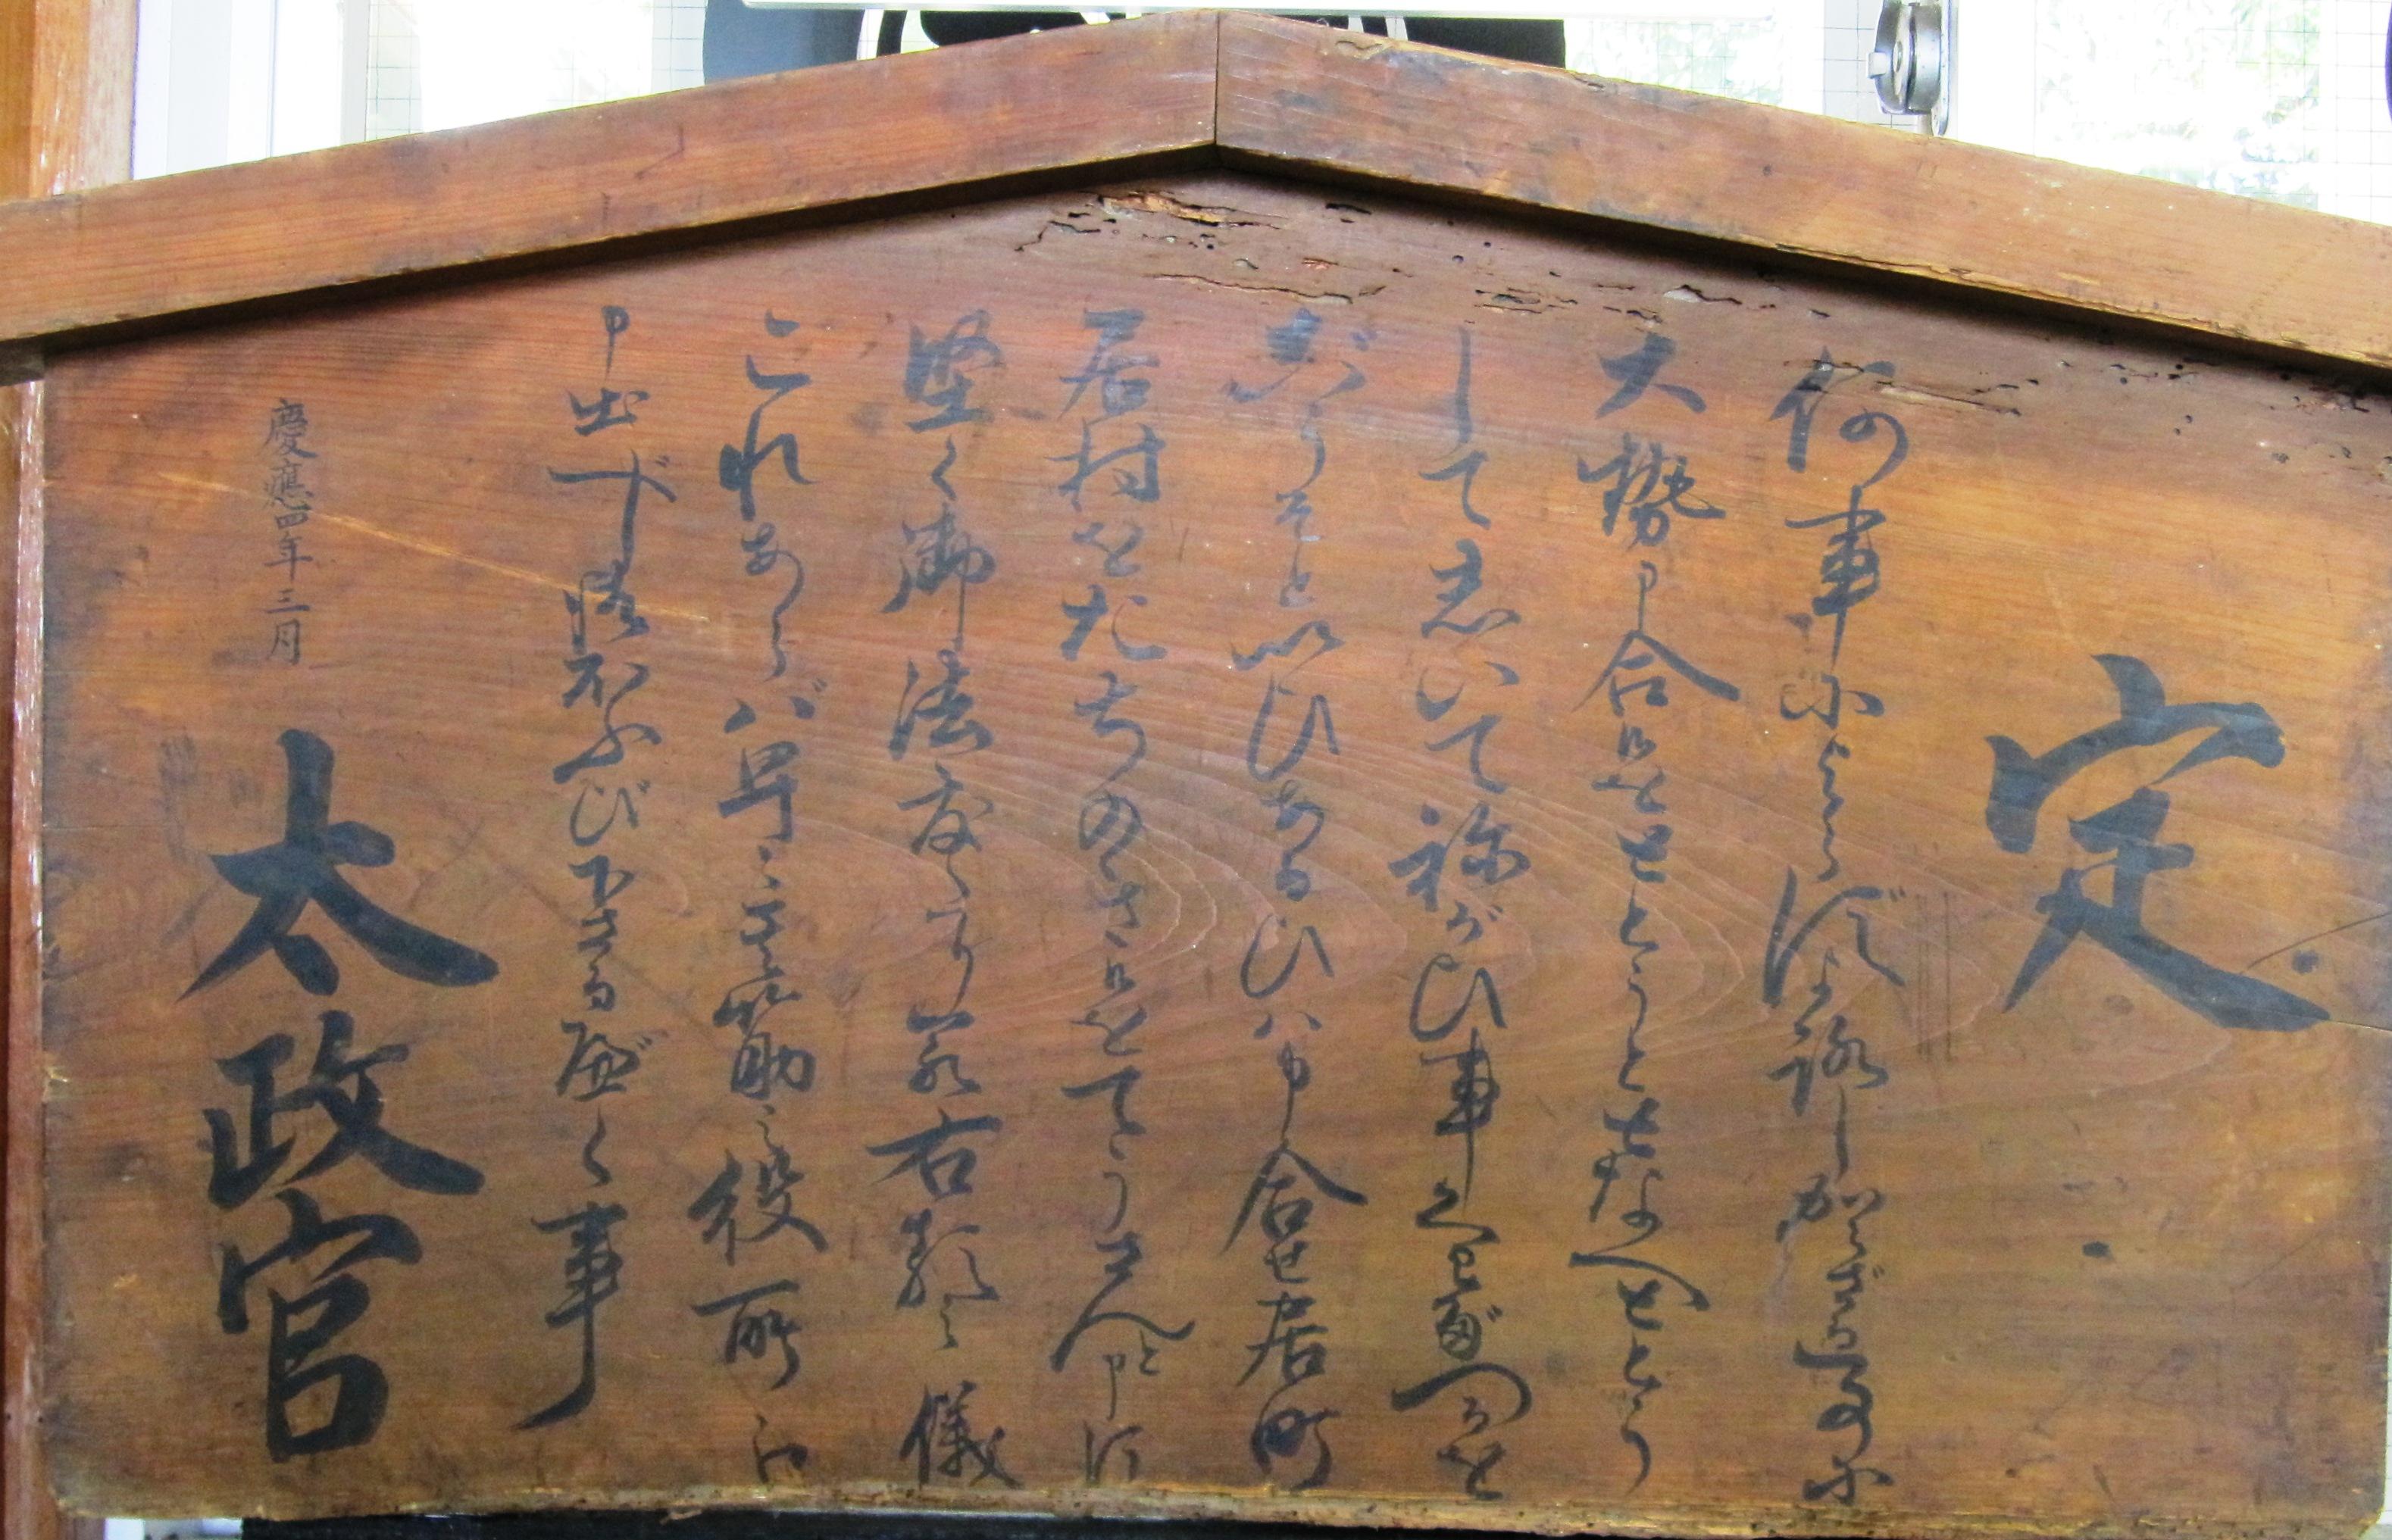 定
何事によらずよ路しからざる事に
大勢申合候をととうととなへととう
してしいてねがひ事くわだつるを
ごうそといひあるひハ申合せ居町
居村をたちのき候をてうさんと申す
堅く御法度たり若右類之儀
これあらバ早々其筋之役所江
申出べし御ほふび下さるべく事
慶應四年三月
太政官